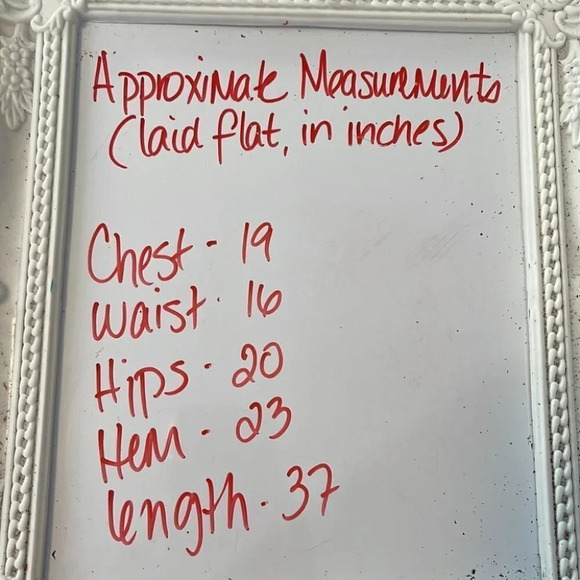 Approximate Measurements
(laid flat, in inches)
Chest - 19
Waist - 16
Hips - 20
Hem - 23
Length - 37